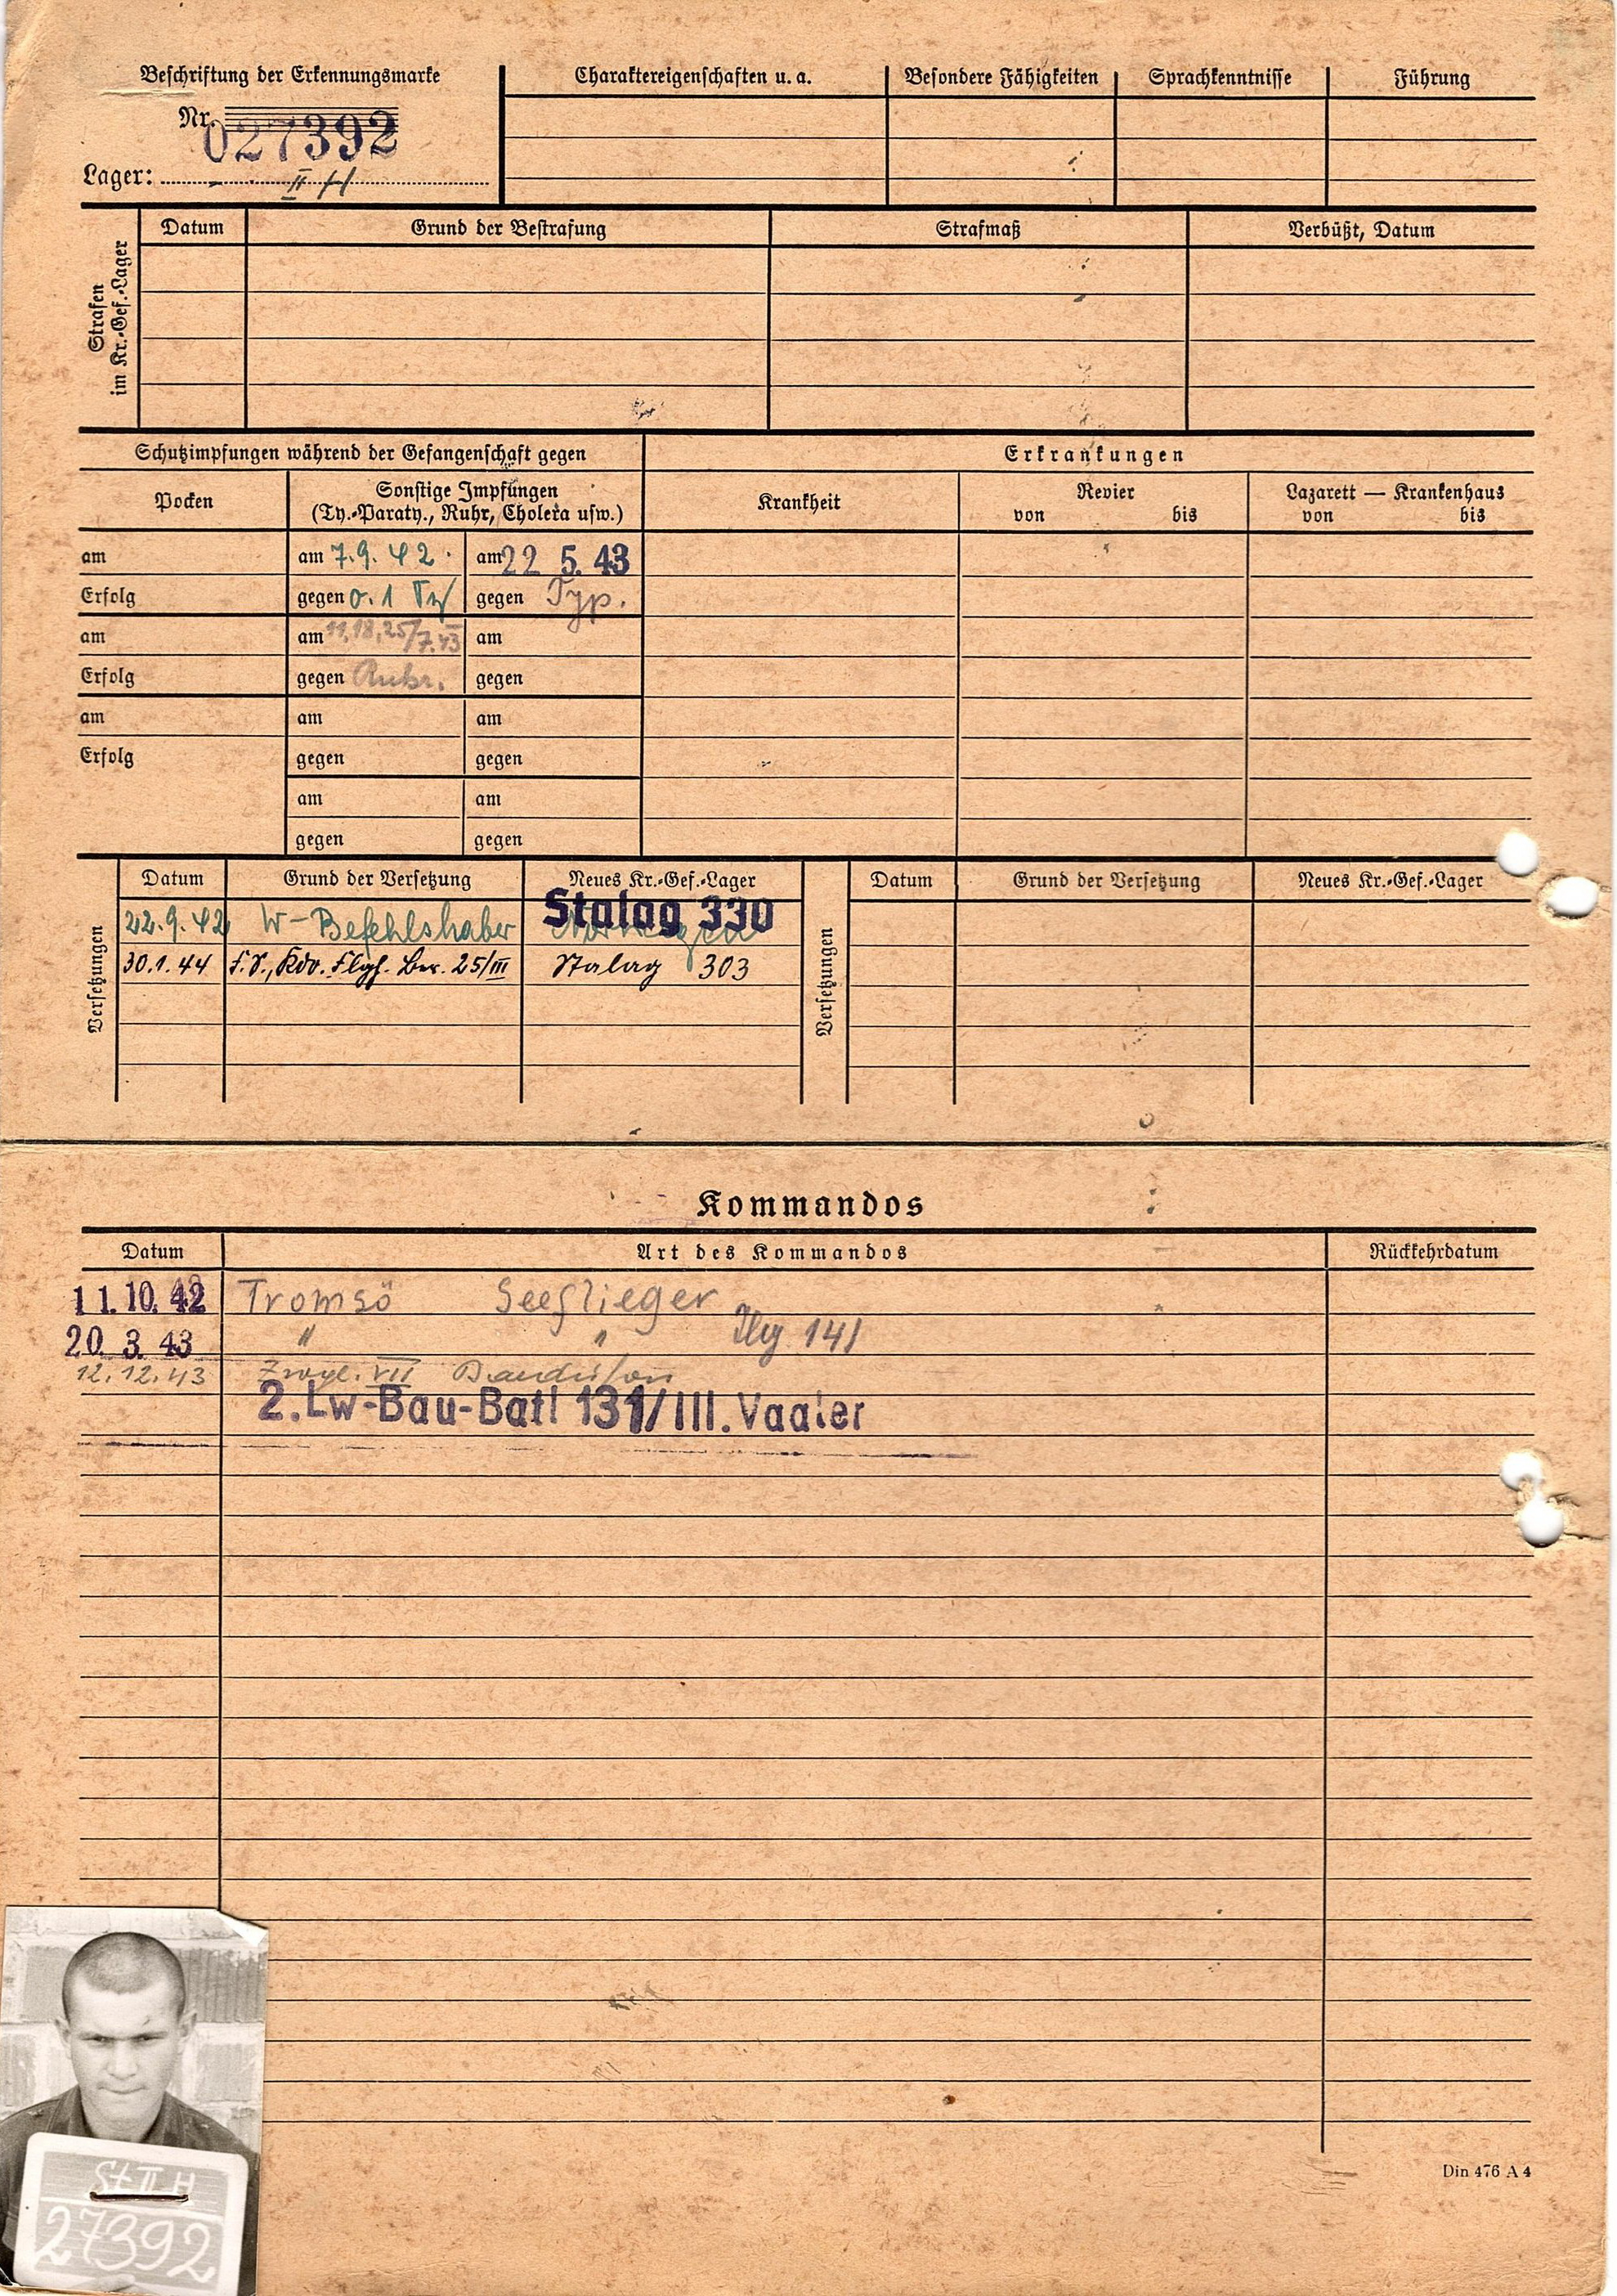 Beschriftung der Erkennungsmarke
Nr. 027392
Lager: II H
Charaktereigenschaften u. a.
Besondere Fähigkeiten
Sprachkenntnisse
Führung
Strafen
im Kr.-Gef.-Lager
Datum
Grund der Bestrafung
Strafmaß
Verbüßt, Datum
Schutzimpfungen während der Gefangenschaft gegen
Erkrankungen
Pocken
Sonstige Impfungen
(Ty.-Paraty., Ruhr, Cholera usw.)
Krankheit
Revier
von bis
Lazarett — Krankenhaus
von bis
am
am 7.9.42
am 22 5. 43
Erfolg
gegen 0.1
gegen Typ.
am
am 11,18,25/7.43
am
Erfolg
gegen Ruhr.
gegen
am
am
am
Erfolg
gegen
gegen
am
am
gegen
gegen
Versetzungen
Datum
Grund der Versetzung
Neues Kr.-Gef.-Lager
22.9.42 W-Befehlshaber Norwegen
Stalag 330
30.1.44 Kdo. Flgh. Ber. 25/III Stalag 303
Versetzungen
Datum
Grund der Versetzung
Neues Kr.-Gef.-Lager
Kommandos
Datum
Art des Kommandos
Rückkehrdatum
11.10.42 Tromsö Seeflieger
20. 3. 43 " " 141
12.12.43 VII
2.Lw-Bau-Batl 131/III. Vaaler
St II H
27392
Din 476 A 4